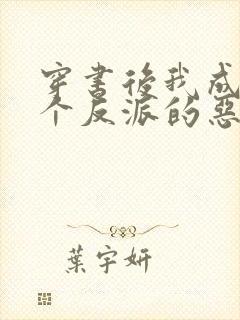 穿書後我成
个反派的惡
葉宇妍